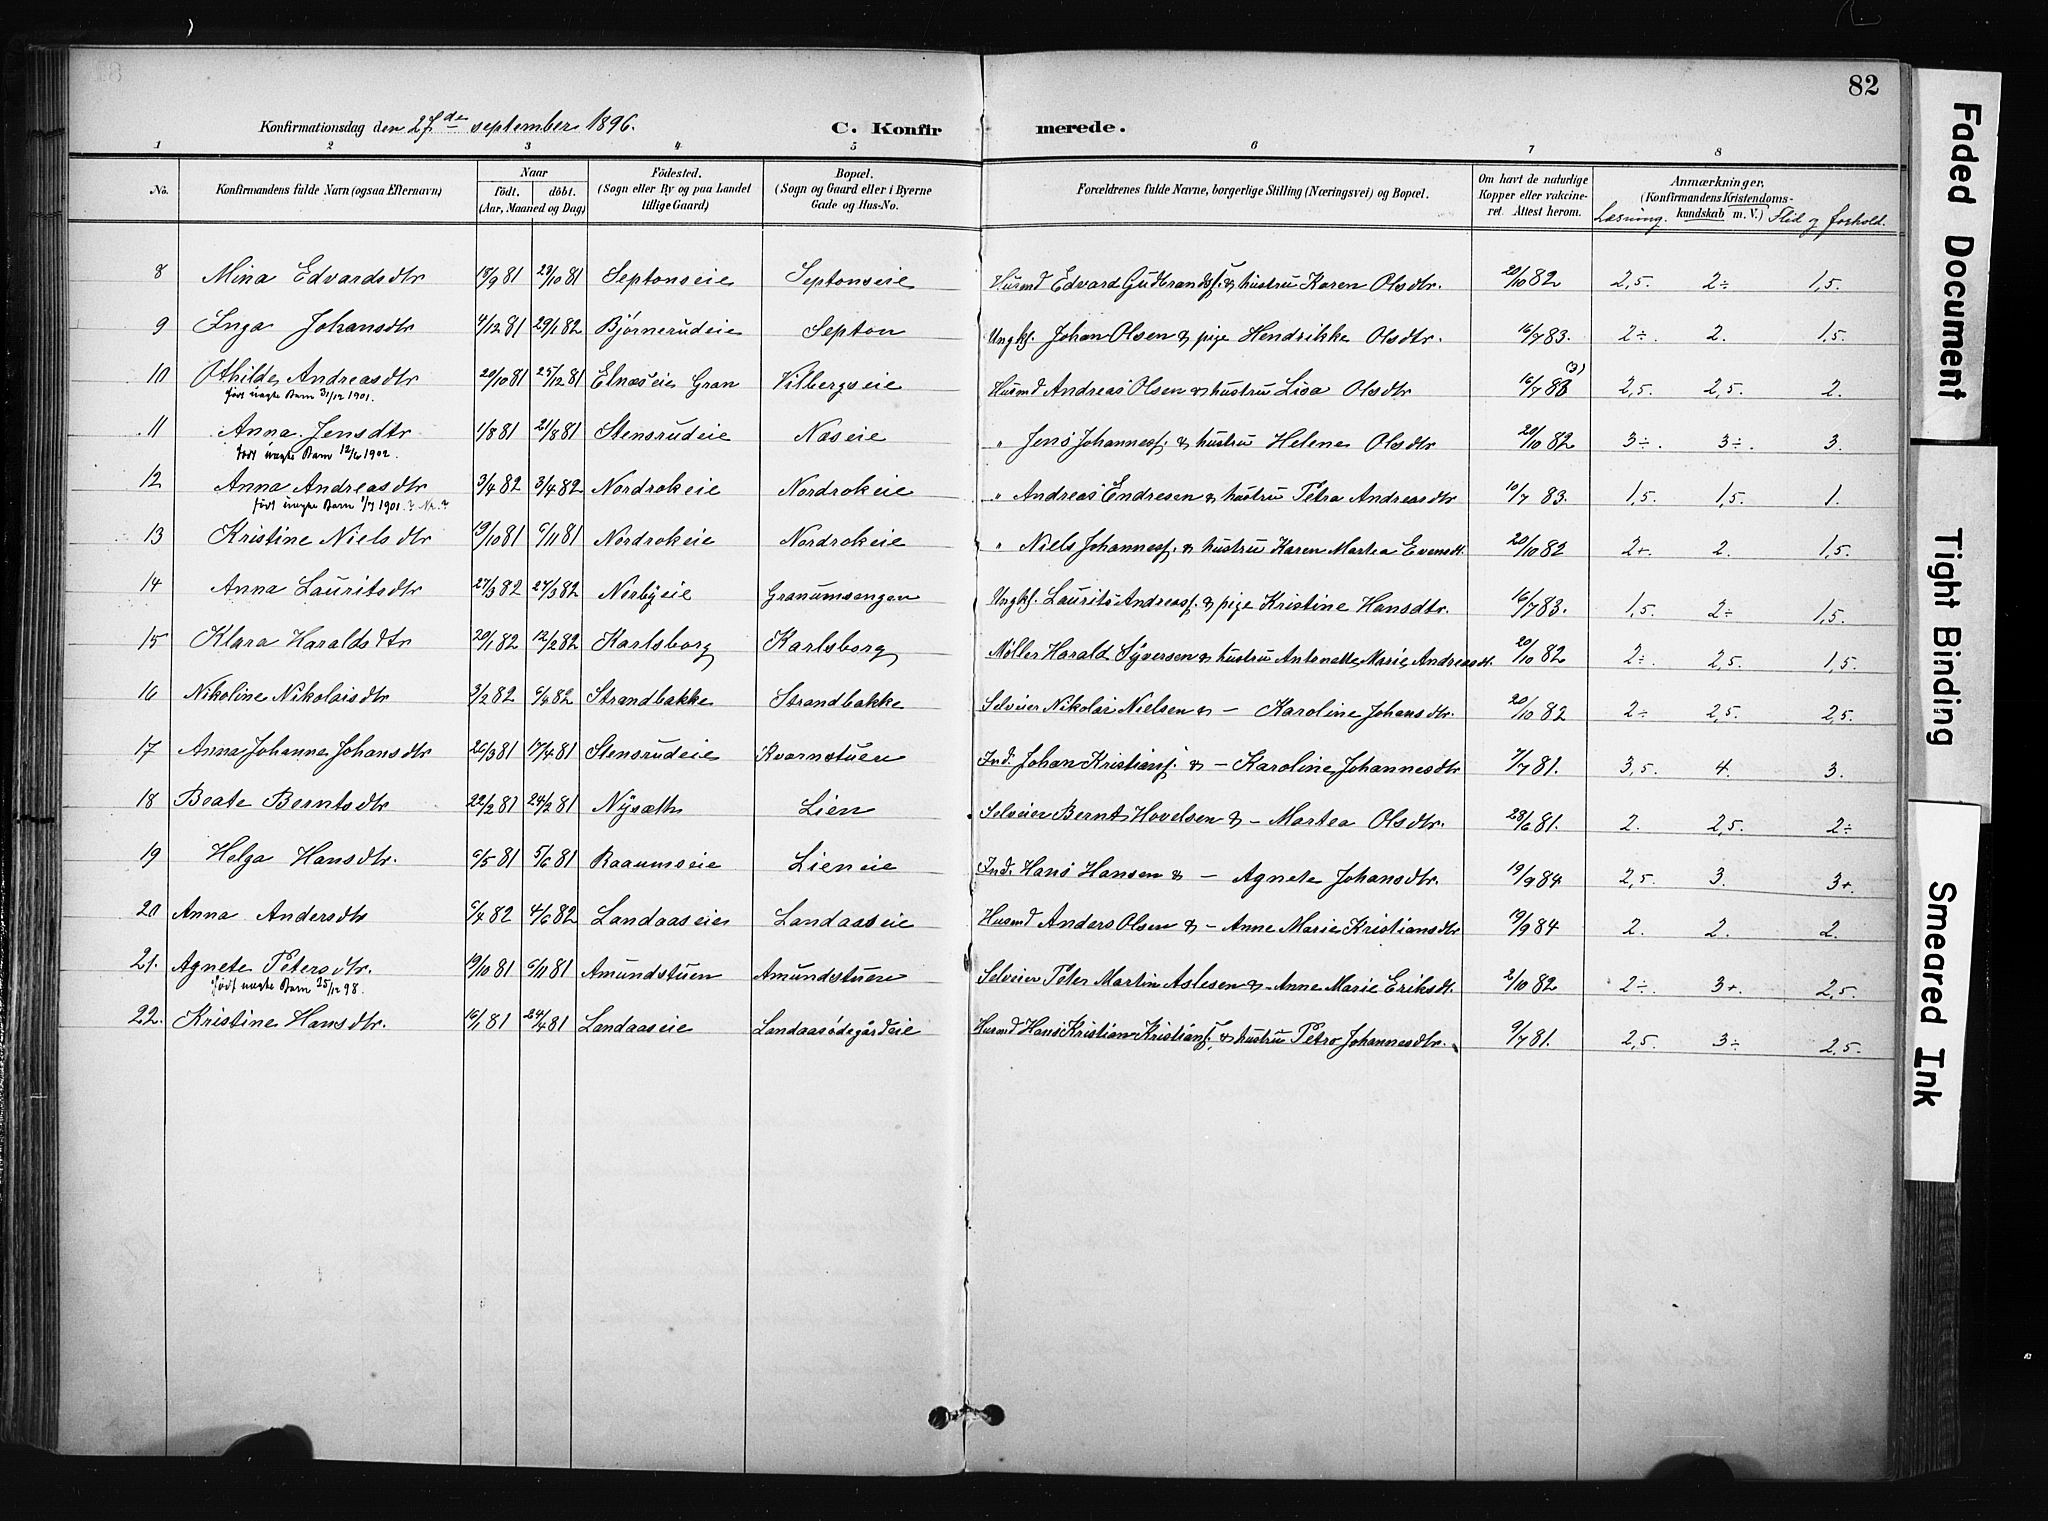 82
Konfirmationsdag den 27de september 1896. C. Konfir merede.
1 2 3 4 5 6 7 8
No. Konfirmandens fulde Navn (ogsaa Efternavn) Naar født. døbt. (Aar, Maaned og Dag) Födested. (Sogn eller By og paa Landet tillige Gaard) Bopæl. (Sogn og Gaard eller i Byerne Gade og Hus-No. Forældrenes fulde Navne, borgerlige Stilling (Næringsvei) og Bopæl. Om havt de naturlige Kopper eller vakcineret. Attest herom. Anmærkninger. (Konfirmandens Kristendomskundskab m. V.) Læsning. Flid og forhold.
8 Mina Edvardsdtr 18/9 81 29/10 81 Septonseie Septonseie Husmd Edvard Gudbrandsf. & hustru Karen Olsdtr. 20/10 82 2,5. 2÷ 1,5.
9 Inga Johansdtr 4/12 81 29/1 82 Bjørnerudeie Septon Ungkf. Johan Olsen & pige Hendrikke Olsdtr. 16/7 83. 2÷. 2. 1,5.
10 Othilde Andreasdtr 20/10 81 25/12 81 Elnæseie Gran Vilbergseie Husmd Andreas Olsen & hustru Lisa Olsdtr 16/7 83 (3) 2,5. 2,5. 2.
født uægte Barn 31/12 1901.
11 Anna Jensdtr 1/8 81 21/8 81 Stensrudeie Næseie " Jens Johannesf. & hustru Helene Olsdtr 20/10 82 3÷. 3÷. 3.
født uægte Barn 12/6 1902.
12 Anna Andreasdtr 3/4 82 3/4 82 Nordrokeie Nordrokeie " Andreas Endresen & hustru Petra Andreasdtr 10/7 83. 1,5. 1,5. 1.
født uægte Barn 1/7 1901.
13 Kristine Nielsdtr 19/10 81 6/11 81 Nordrokeie Nordrokeie " Niels Johannesf. & hustru Karen Martea Evensdt. 20/10 82 2+. 2. 1,5.
14 Anna Lauritsdtr 27/3 82 27/3 82 Nerbyeie Granumsengen Ungkf. Laurits Andreasf. & pige Kristine Hansdtr. 16/7 83. 1,5. 2÷ 1,5.
15 Klara Haraldsdtr 20/1 82 12/2 82 Karlsborg Karlsborg Møller Harald Syversen & hustru Antonette Marie Andreasdt. 20/10 82 2÷. 2,5. 1,5.
16 Nikoline Nikolaisdtr 3/2 82 6/4 82 Strandbakke Strandbakke Selveier Nikolai Nielsen & — Karoline Johansdtr. 20/10 82 2÷ 2,5. 2,5.
17 Anna Johanne Johansdtr 26/3 81 17/4 81 Stensrudeie Kvarnstuen Ind. Johan Kristiansf. & — Karoline Johannesdtr 7/7 81. 3,5. 4. 3.
18 Beate Berntsdtr 22/2 81 24/2 81 Nysæth Lien Selveier Bernt Hovelsen & — Martea Olsdtr. 28/6 81. 2. 2,5. 2÷
19 Helga Hansdtr. 6/5 81 5/6 81 Raaumseie Lieneie Ind. Hans Hansen & — Agnete Johansdtr. 19/9 84. 2,5. 3. 3+.
20 Anna Andersdtr 6/4 82 4/6 82 Landaaseie Landaaseie Husmd Anders Olsen & — Anne Marie Kristiansdtr 19/9 84 2. 2. 2.
21. Agnete Petersdtr. 19/10 81 6/11 81 Amundstuen Amundstuen Selveier Peter Martin Aslesen & — Anne Marie Eriksdt. 2/10 82 2÷. 3+. 2,5.
født uægte Barn 25/12 98.
22. Kristine Hansdtr. 16/1 81 24/4 81 Landaaseie Landaasødegårdeie Husmd Hans Kristian Kristiansf. & hustru Petro Johannesdtr. 9/7 81. 2,5. 3÷ 2,5.
Faded Document
Tight Binding
Smeared Ink